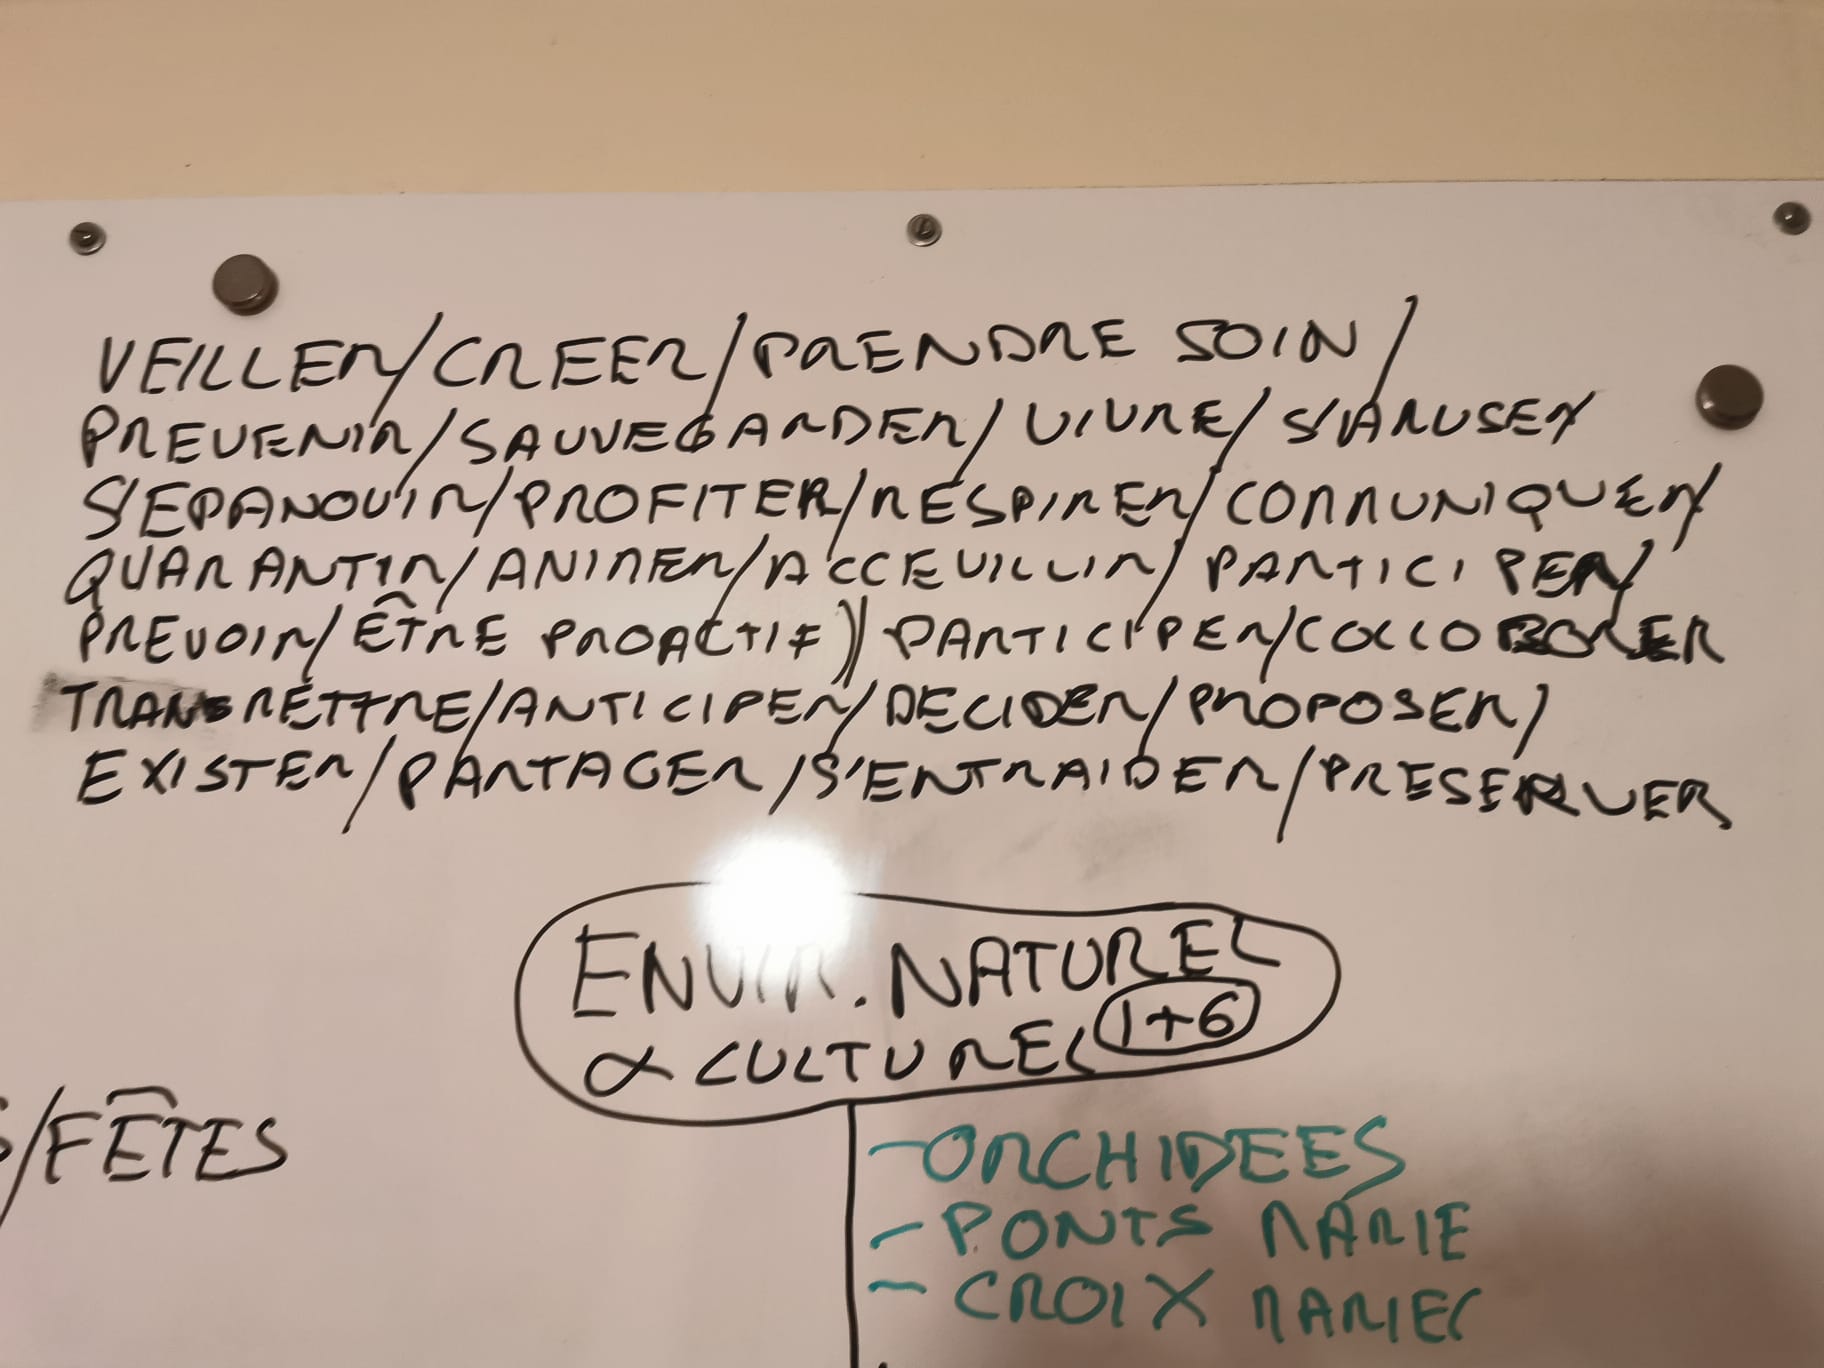 VEILLER/CREER/PRENDRE SOIN/
PREVENIR/SAUVEGARDER/VIVRE/S'AMUSER/
S'EPANOUIR/PROFITER/RESPIRER/COMMUNIQUER/
QUARANTIR/ANIMER/ACCEUILLIR/PARTICIPER/
PREVOIR/ÊTRE PROACTIF)/PARTICIPER/COLLOBORER
TRANSMETTRE/ANTICIPER/DECIDER/PROPOSER/
EXISTER/PARTAGER/S'ENTRAIDER/PRESERVER
ENVIR. NATUREL
& CULTUREL 1+6
/FÊTES
- ORCHIDEES
- PONTS MARIE
- CROIX MARIEL